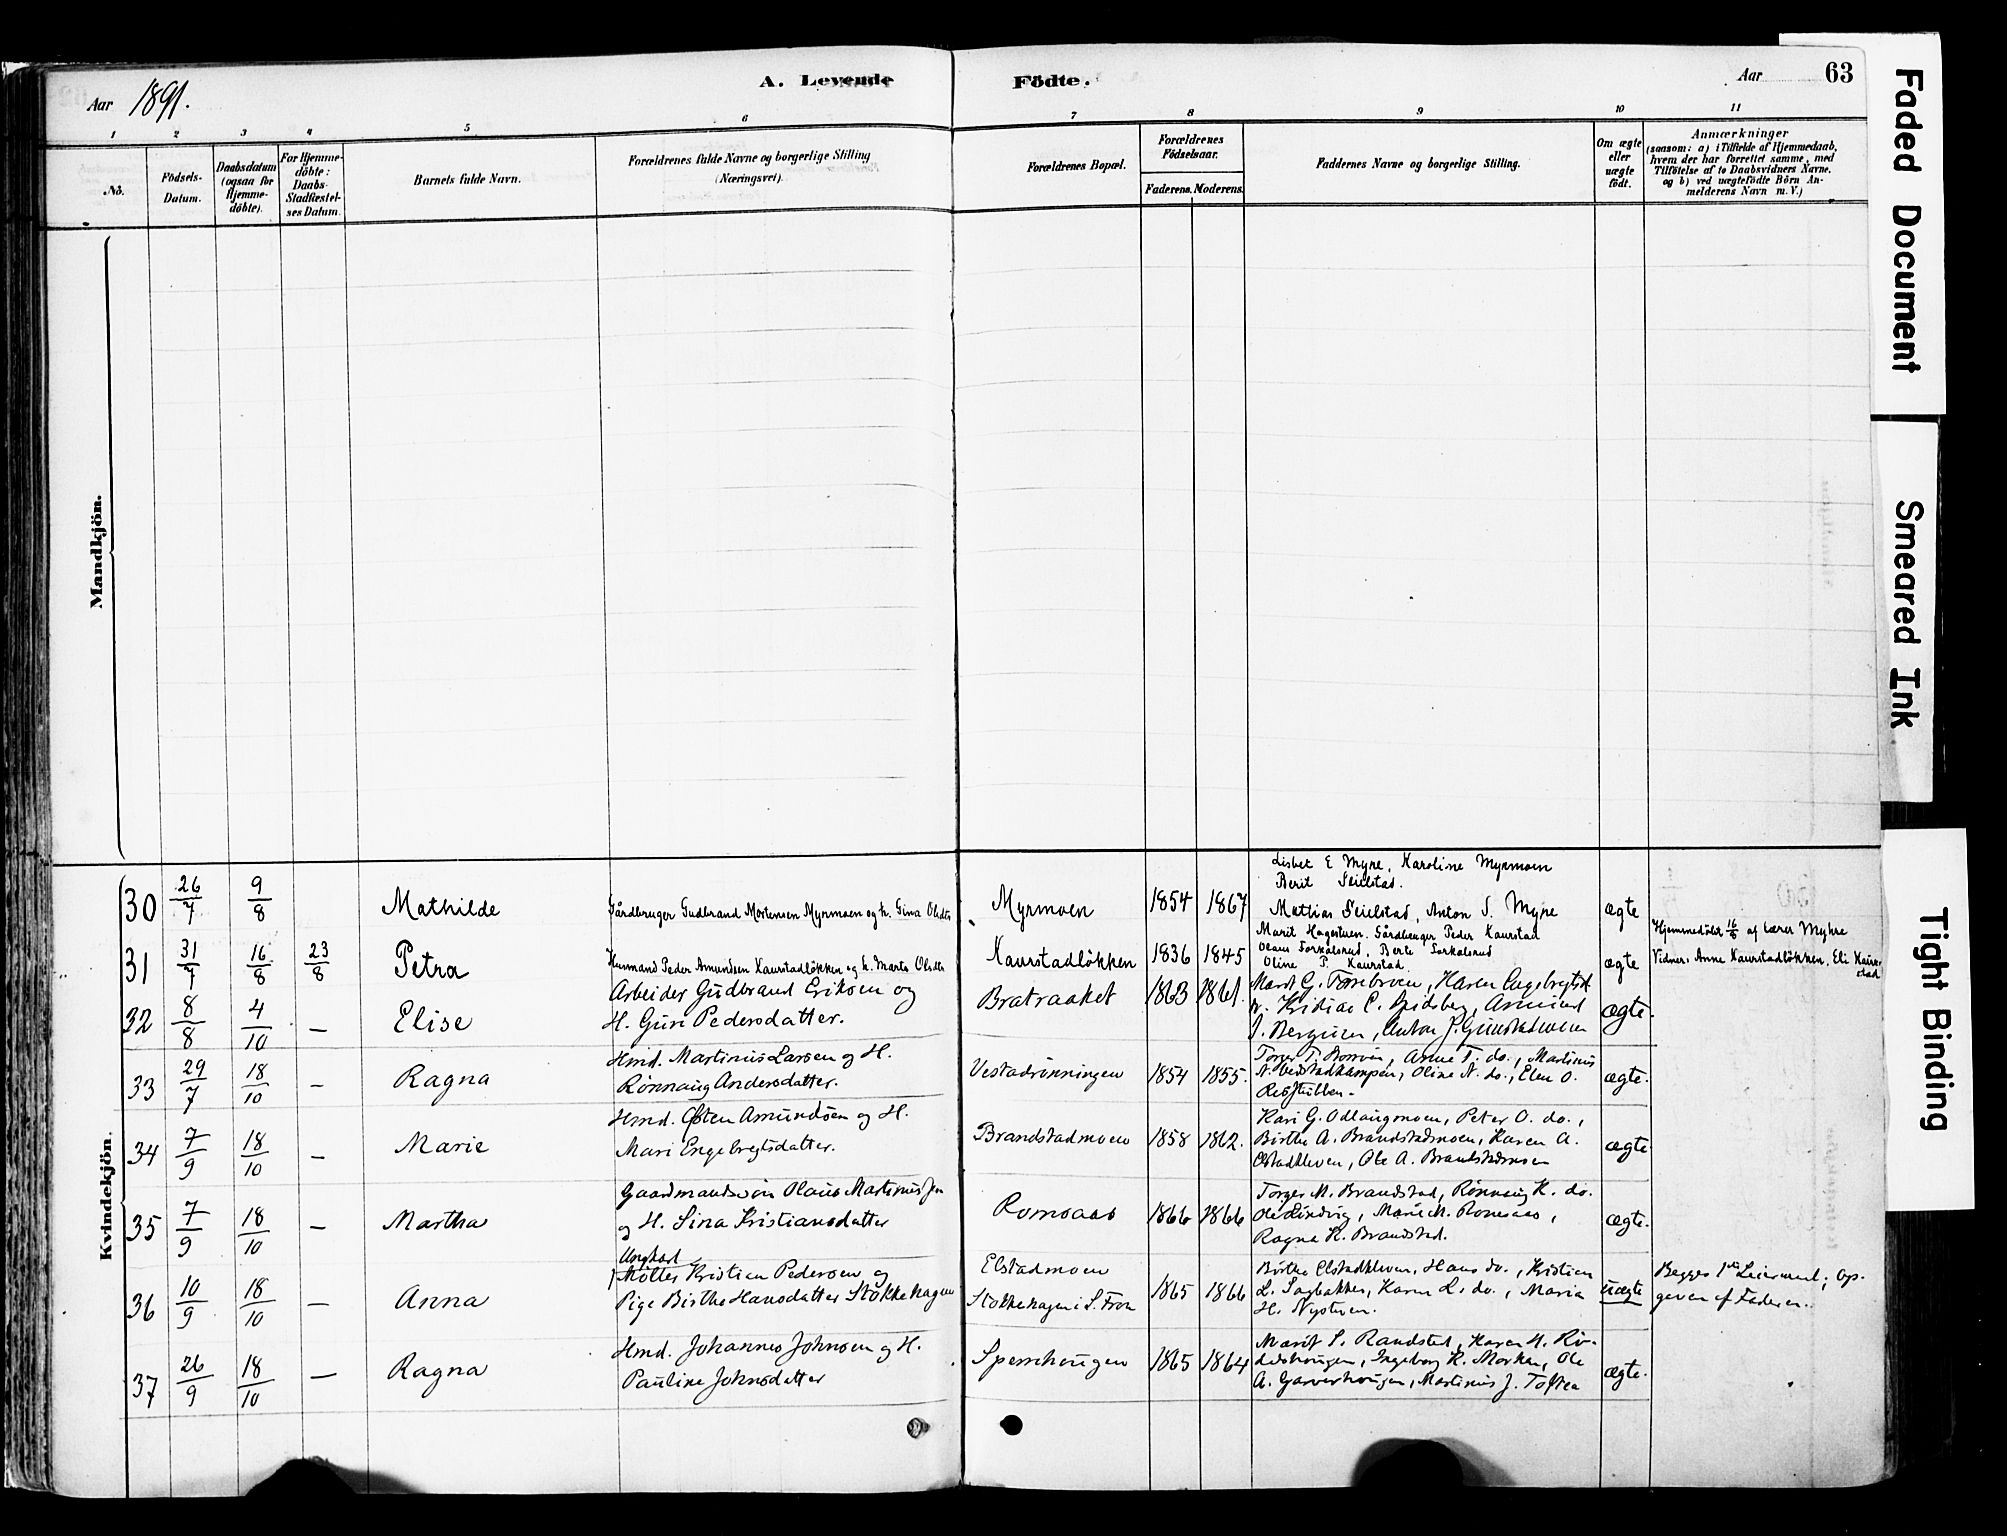 Aar 1891.
A. Levende Födte.
Aar 63
1 2 3 4 5 6 7 8 9 10 11
No.
Födsels-
Datum.
Daabsdatum
(ogsaa for
hjemme-
döbte).
For Hjemme-
döbte:
Daabs-
Stadfæstel-
ses Datum.
Barnets fulde Navn.
Forældrenes fulde Navne og borgerlige Stilling
(Næringsvei).
Forældrenes Bopæl.
Forældrenes
Födselsaar.
Faderens. Moderens.
Faddernes Navne og borgerlige Stilling.
Om ægte
eller
uægte
födt.
Anmærkninger
(saasom: a) i Tilfælde af Hjemmedaab,
hvem der har forrettet samme, med
Tilföielse af to Daabsvidners Navne.
og b) ved uægtefödte Börn An-
melderens Navn m. V.)
Mandkjön.
Kvindekjön.
30 26/7 9/8 Mathilde
Gårdbruger Gudbrand Mortensen Myrmoen og h. Gina Olsdtr
Myrmoen 1854 1867
Lisbet E Myre, Karoline Myrmoen
Berit Seielstad.
Mathias Seielstad, Anton S. Myre
ægte
31 31/7 16/8 23/8 Petra
Husmand Peder Amundsen Kaurstadløkken og h. Marte Olsdtr
Kaurstadløkken 1836 1845
Marit Hagestuen. Gårdbruger Peder Kaurstad
Olaus Forkalsrud, Berte Forkalsrud
Oline P. Kaurstad.
ægte
Hjemmedöbt 16/8 af Lærer Myhre
Vidner: Anne Kaurstadløkken. Eli Kaur-
stad
32 8/8 4/10 — Elise
Arbeider Gudbrand Eriksen og
H. Guri Pedersdatter.
Bratraaket 1863 1861.
Marit G. Karen Engebregtsd.
ægte.
33 29/7 18/10 — Ragna
Hmd. Martinus Larsen og H.
Rønnaug Andersdatter.
Vestadrønningen 1854 1855.
Torger T. Anne T. do., Martinus
N. Veistadkampen, Oline N. do., Elen O.
ægte.
34 7/9 18/10 — Marie
Hmd. Østen Amundsen og H.
Mari Engebregtsdatter.
Brandstadmoen 1858 1862.
Kari G. Odlaugmoen, Peter O. do.,
Birthe A. Brandstadmoen, Karen A.
Elstadkleven, Ole A. Brandstadmoen
ægte.
35 7/9 18/10 — Martha
Gaardmandssøn Olaus Martinusen
og H. Sina Kristiansdatter
Romsaas 1866 1866
Torger M. Brandstad, Rønnaug K. do.
Ole Lindvig, Marie M. Romsaas,
Ragna K. Brandstad.
ægte.
36 10/9 18/10 — Anna
Ungkarl
Møller Kristian Pedersen og
Pige Birthe Hansdatter Stokkehagen
Elstadmoen
Stokkehagen i S. Fron
1865 1866
Birthe Elstadkleven, Hans do., Kristian
L. Sagbakken, Karen L. do., Maria
H. Nystuen.
uægte
Begges 1ste Leiermaal; Op-
given af Faderen.
37 26/9 18/10 — Ragna
Hmd. Johannes Johnsen og H.
Pauline Johnsdatter
Spernhaugen 1865 1864
Marit S. Randstad, Karen H.
Ingeborg K. Morken, Ole
A. Garverhaugen, Martinus J. Toften
ægte.
Faded Document
Smeared Ink
Tight Binding